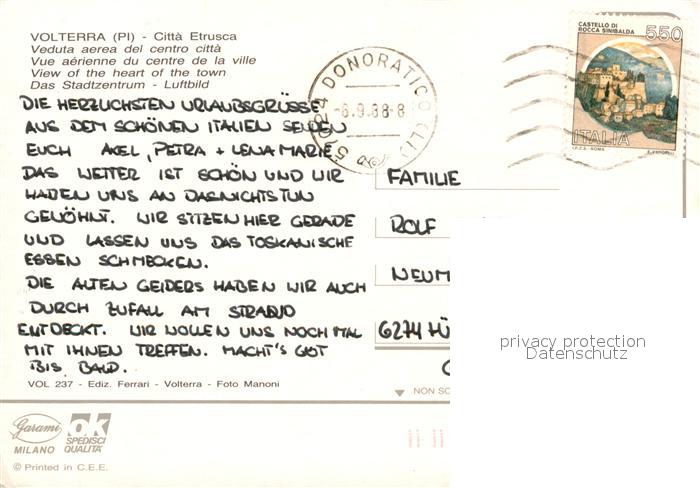 VOLTERRA (PI) - Città Etrusca
Veduta aerea del centro città
Vue aérienne du centre de la ville
View of the heart of the town
Das Stadtzentrum - Luftbild
CASTELLO DI
ROCCA SINIBALDA
550
ITALIA
I.P.Z.S. - ROMA
DONORATICO (LI)
-6.9.88-8
DIE HERZLICHSTEN URLAUBSGRÜSSE
AUS DEM SCHÖNEN ITALIEN SENDEN
EUCH AXEL, PETRA + LENA MARIE
DAS WETTER IST SCHÖN UND WIR
HABEN UNS AN DAS NICHTSTUN
GEWÖHNT. WIR SITZEN HIER GERADE
UND LASSEN UNS DAS TOSKANISCHE
ESSEN SCHMECKEN.
DIE ALTEN GEIDERS HABEN WIR AUCH
DURCH ZUFALL AM STRAND
ENTDECKT. WIR WOLLEN UNS NOCH MAL
MIT IHNEN TREFFEN. MACHT'S GUT
BIS BALD.
FAMILIE
ROLF
NEUM
6274 HÜ
privacy protection
Datenschutz
VOL 237 - Ediz. Ferrari - Volterra - Foto Manoni
NON SC
Garami
MILANO
OK
SPEDISCI
QUALITÀ
© Printed in C.E.E.